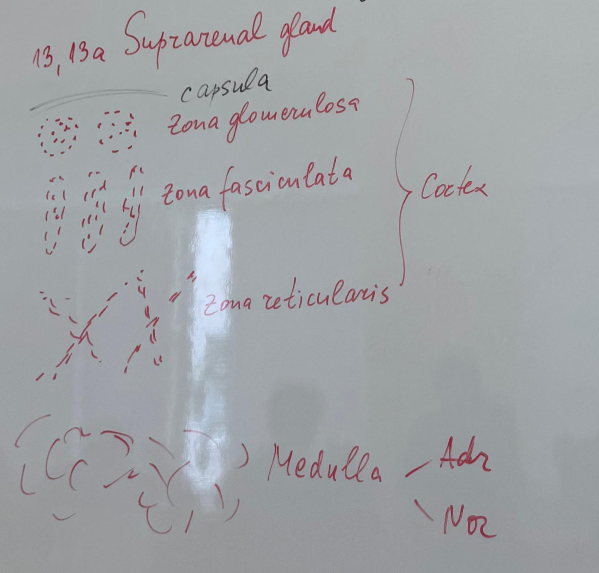 13, 13a Suprarenal gland
capsula
Zona glomerulosa
Zona fasciculata
Cortex
Zona reticularis
Medulla
Adr
Nor